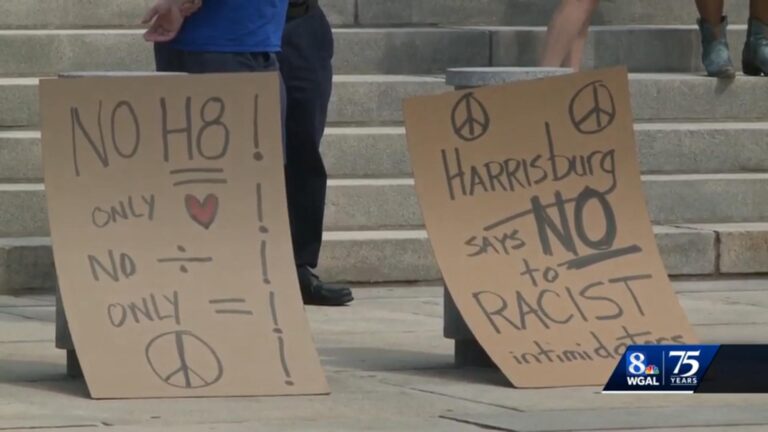 NO H8 !
ONLY ♥ !
NO ÷ !
ONLY = !
Harrisburg
says NO
to
RACIST
intimidators
8 75
WGAL YEARS